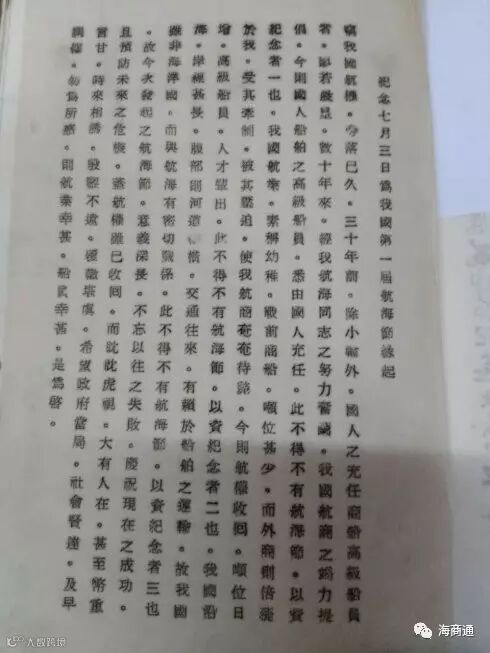 紀念七月三日爲我國第一屆航海節緣起
竊我國航權。旁落已久。三十年前。除小輪外。國人之充任商船高級船員
者。若晨星。數十年來。經我航海同志之努力奮鬬。我國航商之竭力提
倡。今則國人船舶之高級船員。悉由國人充任。此不得不有航海節。以資
紀念者一也。我國航業。素稱幼稚。戰前商船。噸位甚少。而外商則倍蓰
於我。受其牽制。被其壓迫。使我航商奄奄待斃。今則航權收回。噸位日
增。高級船員。人才輩出。此不得不有航海節。以資紀念者二也。我國沿
海。岸線甚長。腹部則河道橫。交通往來。有賴於船舶之運輸。故我國
雖非海洋國。而與航海有密切關係。此不得不有航海節。以資紀念者三也
。故今次發起之航海節。意義深長。不忘以往之失敗。慶祝現在之成功。
且預防未來之危機。蓋航權雖已收回。而眈眈虎視。大有人在。甚至幣重
言甘。時來相誘。殷鑒不遠。覆轍堪虞。希望政府當局。社會賢達。及早
綢繆。勿爲所惑。則航業幸甚。船員幸甚。是爲啓。
大数跨境
海商通